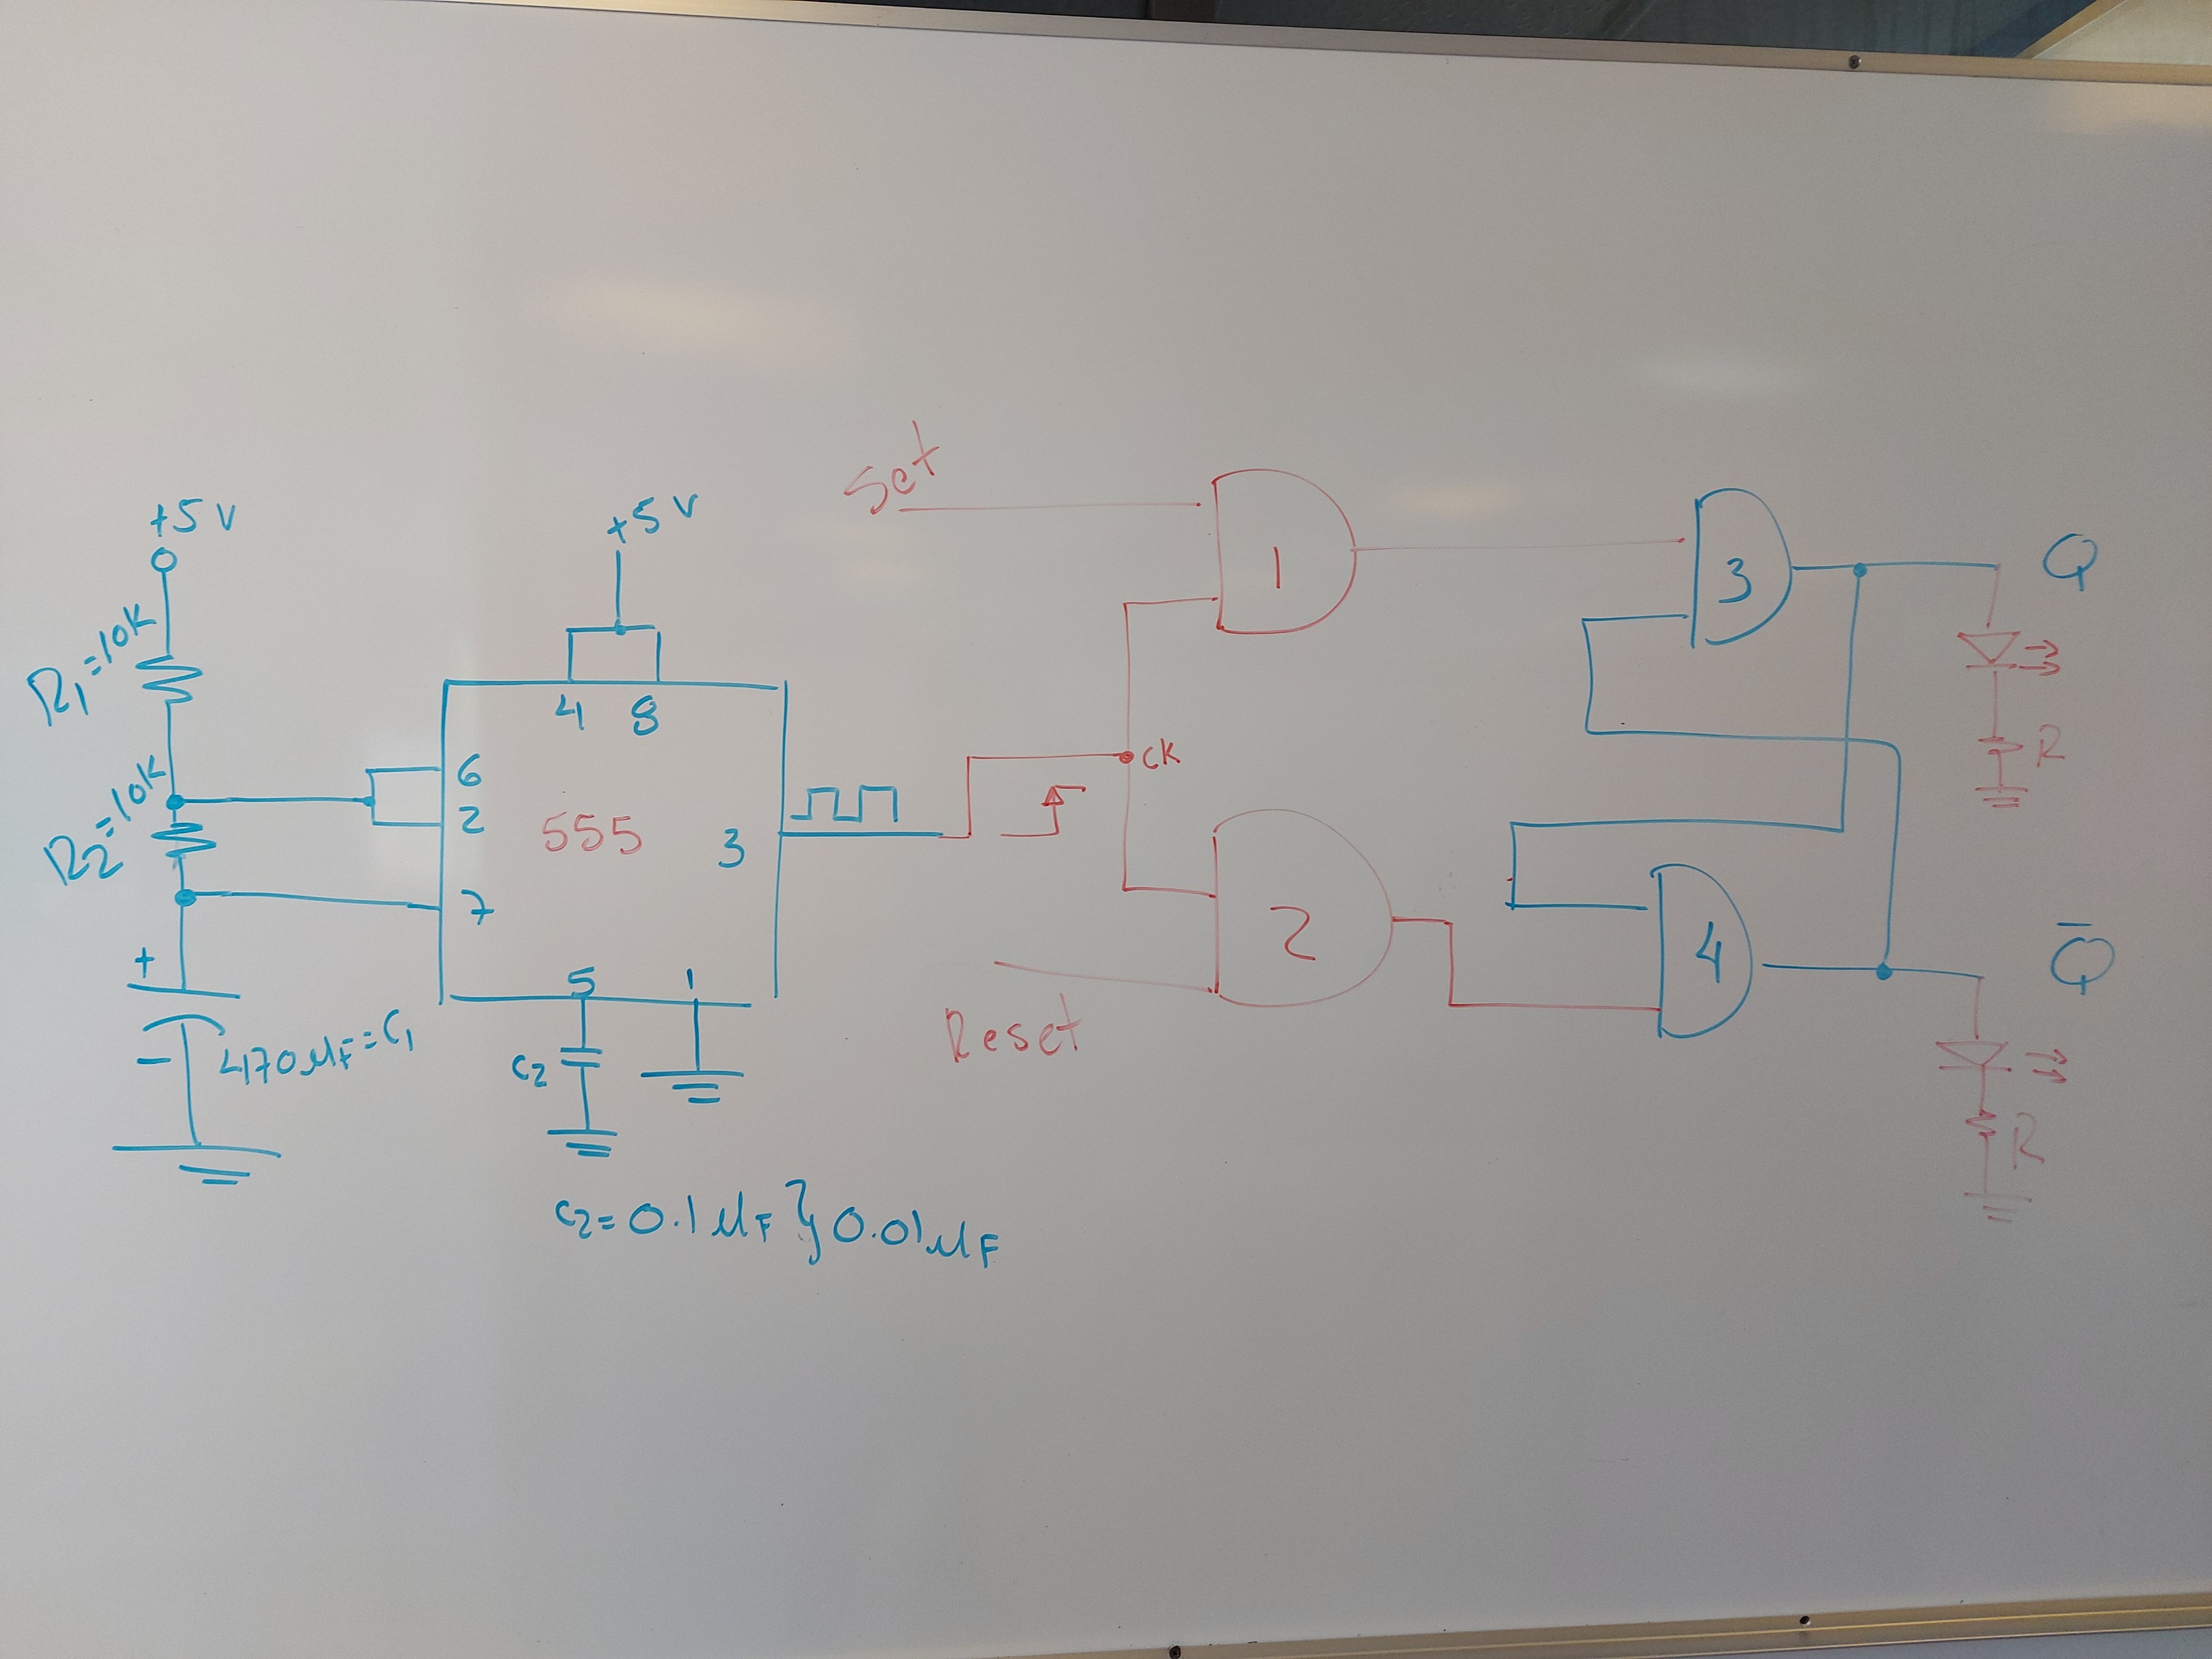 +5 V
R1 =10K
R2 =10K
+
-
470 µF = C1
+5 V
4 8
6
2
7
555
3
5 1
C2
C2 = 0.1 µF } 0.01 µF
Set
CK
Reset
1
2
3
4
Q
R
Q̅
R